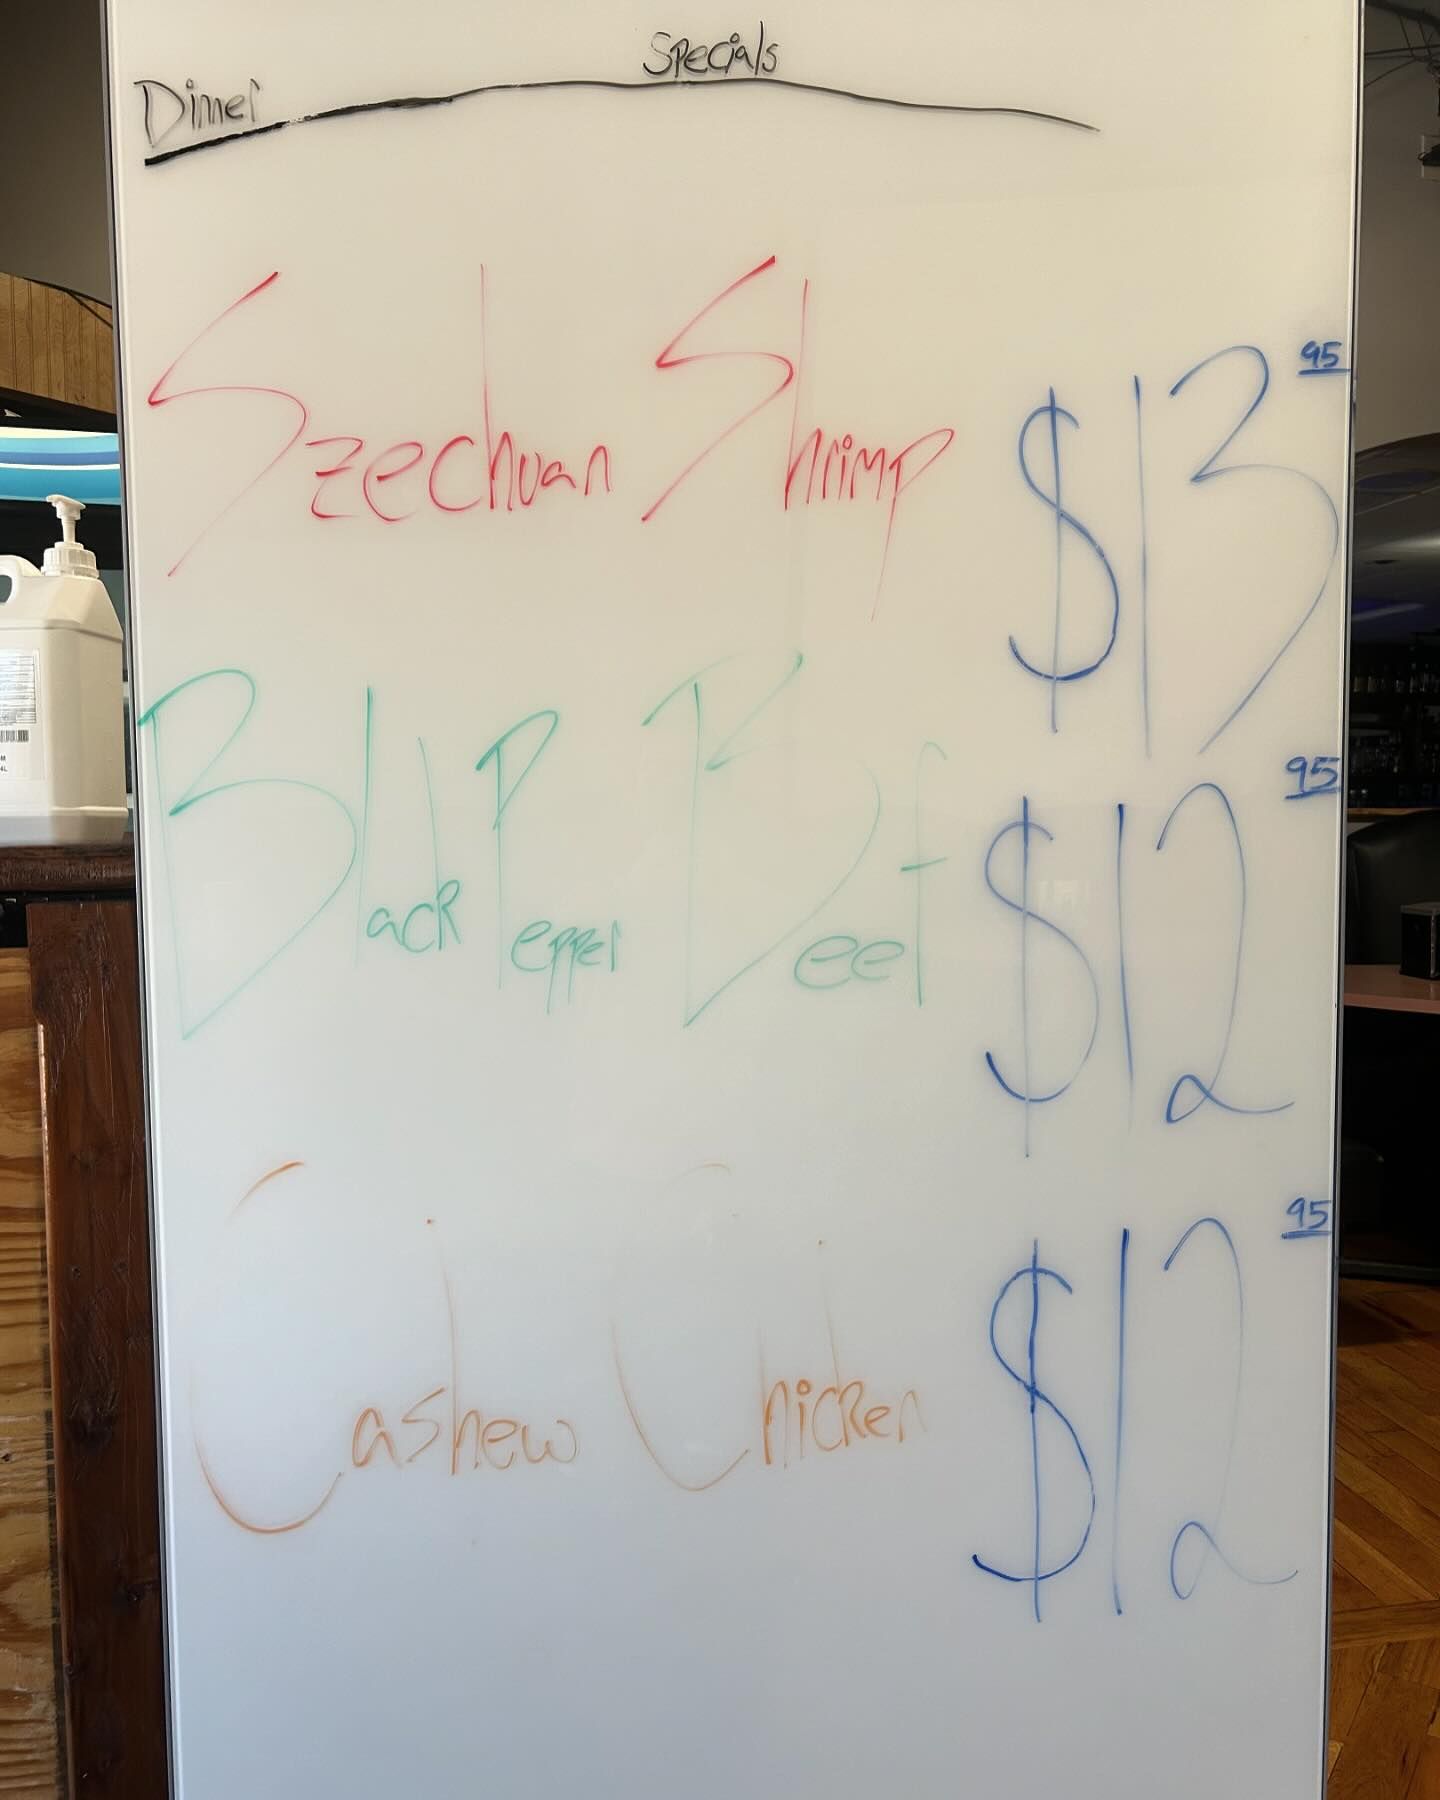 Specials
Dinner
Szechuan Shrimp $13 95
Black Pepper Beef $12 95
Cashew Chicken $12 95